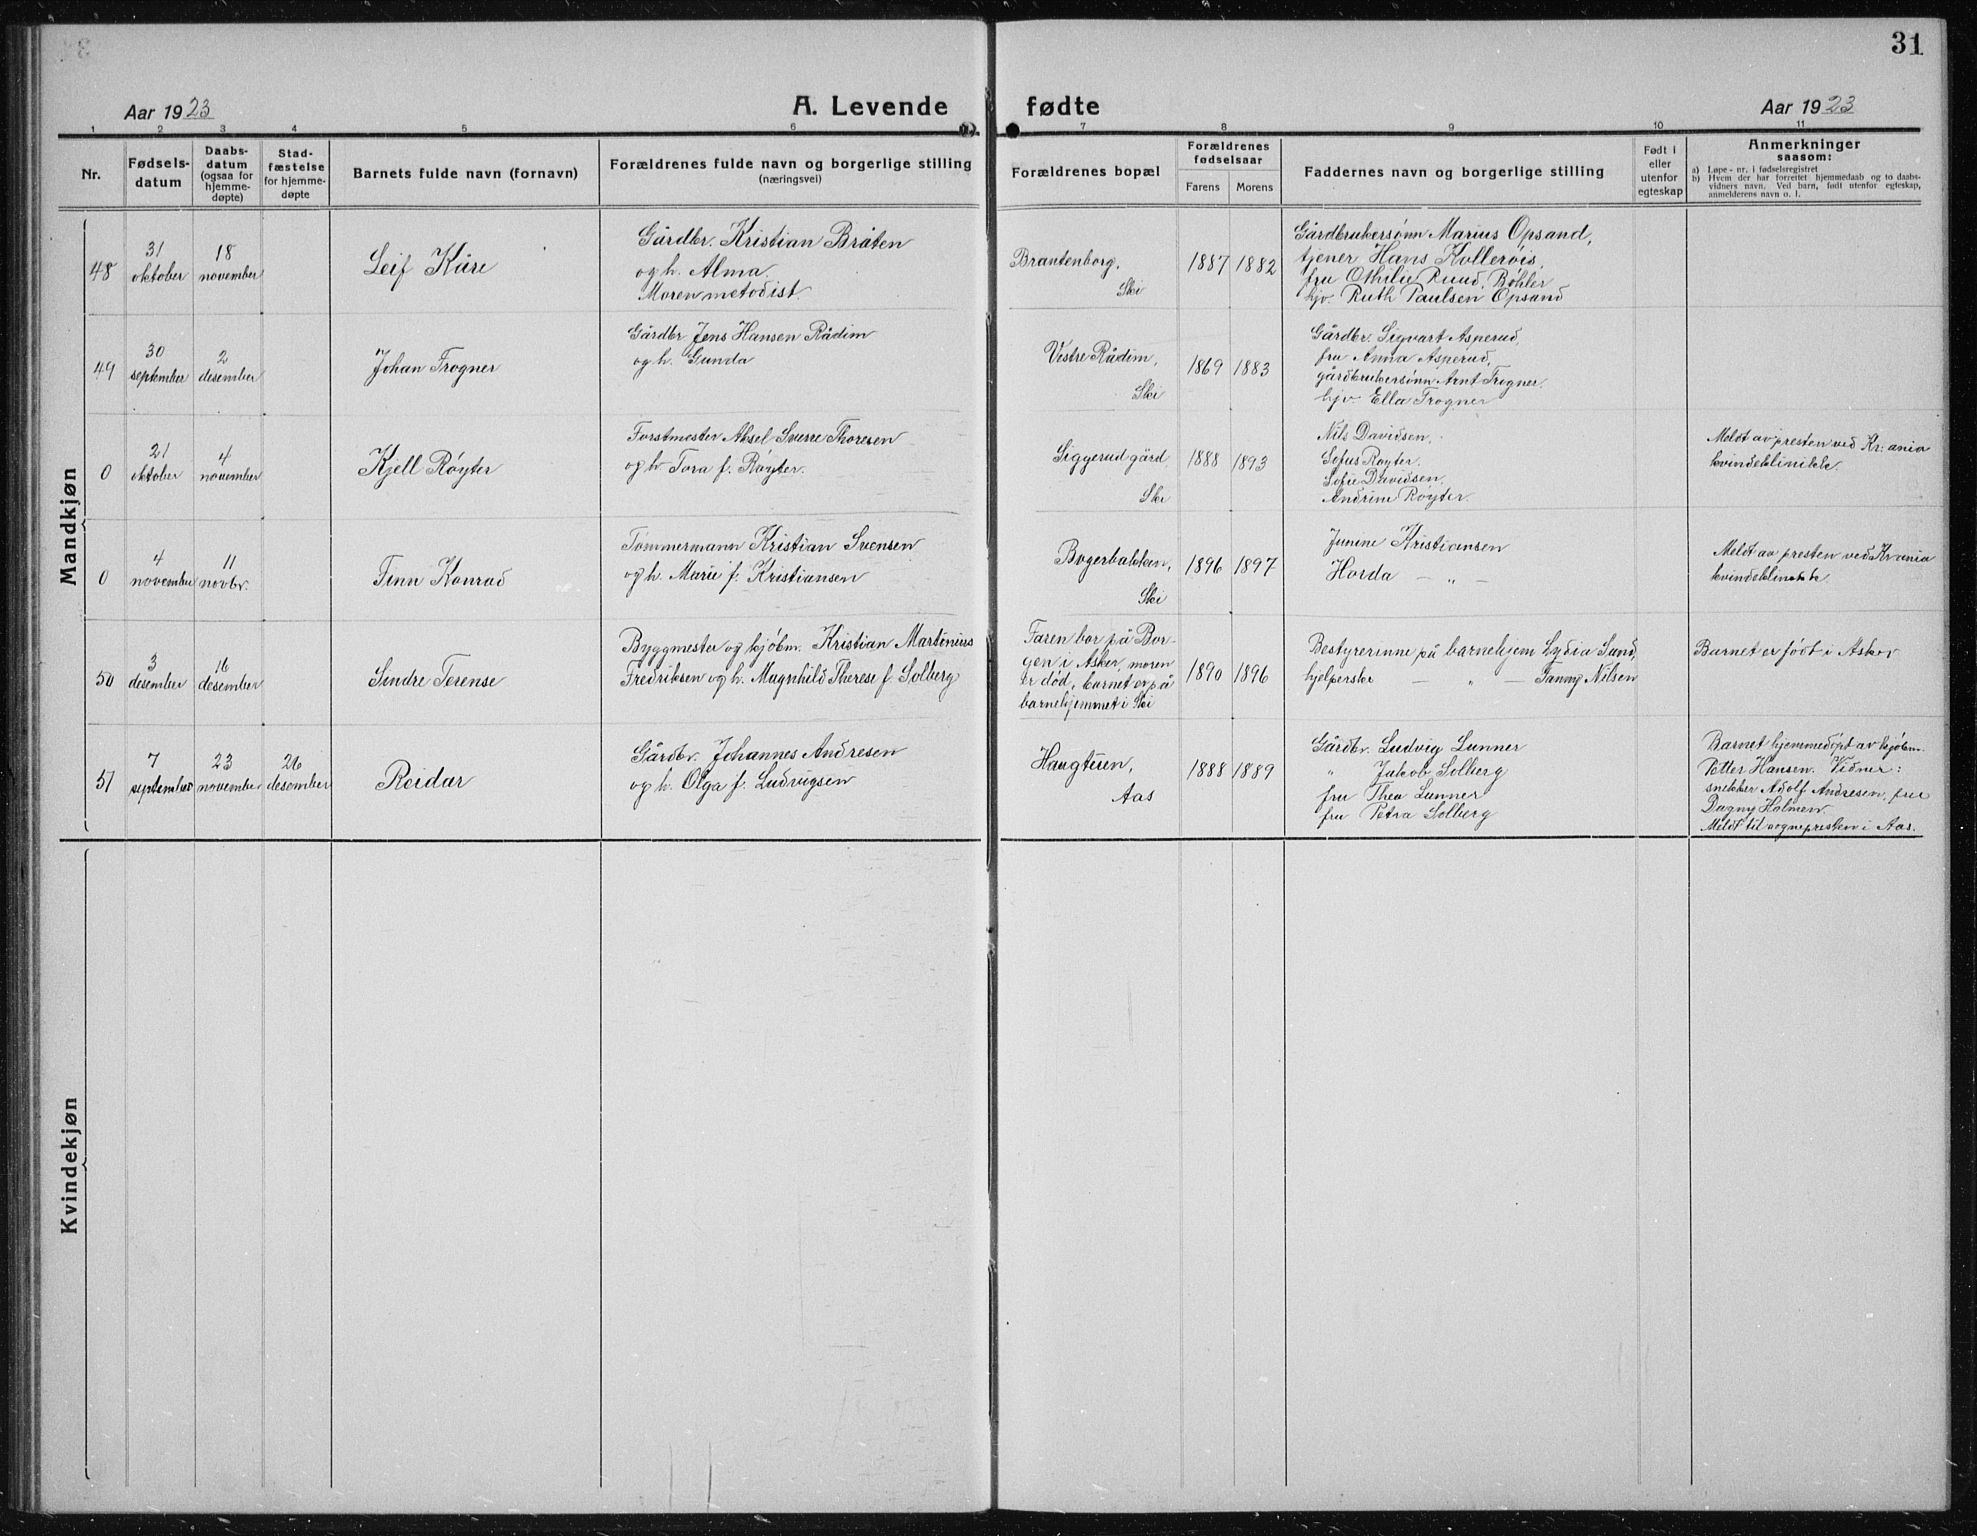 31
Aar 1923
A. Levende fødte
Aar 1923
1 2 3 4 5 6 7 8 9 10 11
Nr.
Fødsels-
datum
Daabs-
datum
(ogsaa for
hjemme-
døpte)
Stad-
fæstelse
for hjemme-
døpte
Barnets fulde navn (fornavn)
Forældrenes fulde navn og borgerlige stilling
(næringsvei)
Forældrenes bopæl
Forældrenes
fødselsaar
Farens
Morens
Faddernes navn og borgerlige stilling
Født i
eller
utenfor
egteskap
Anmerkninger
saasom:
a) Løpe-nr. i fødselsregistret
b) Hvem der har forrettet hjemmedaab og to daabs-
vidners navn. Ved barn, født utenfor egteskap,
anmelderens navn o. l.
Mandkjøn
48
31
oktober
18
november
Leif Kåre
Gårdbr. Kristian Bråten
og h. Alma.
Moren metodist.
Brantenborg,
Ski
1887
1882
Gårdbrukersønn Marius Opsand,
tjener Hans Kollerøis,
fru Othilie Ruud, Bøhler
hjv. Ruth Paulsen Opsand
49
30
september
2
desember
Johan Trogner
Gårdbr Jens Hansen Rådim
og h. Gunda
Vestre Rådim,
Ski
1869
1883
Gårdbr. Sigvart Asperud,
fru Anna Asperud,
gårdbrukersønn Arnt Trogner.
hjv. Ella Trogner
0
21
oktober
4
november
Kjell Røyter
Forstmester Aksel Sverre Thoresen
og h. Tora f. Røyter.
Siggerud gård
Ski
1888
1893
Nils Davidsen,
Sofus Røyter.
Sofie Davidsen.
Andrine Røyter.
Meldt av presten ved Kr:ania
kvindeklinikk.
0
4
november
11
novbr.
Finn Konrad
Tømmermann Kristian Svensen
og h. Marie f. Kristiansen
Bogerbakken,
Ski
1896
1897
Junine Kristiansen
Horda — „ —
Meldt av presten ved Krania
kvindeklinikk.
50
3
desember
16
desember
Sindre Terense
Byggmester og kjøbm. Kristian Martinius
Fredriksen og h. Magnhild Therese f. Solberg
Faren bor på Bor-
gen i Asker, moren
er død, barnet er på
barnehjemmet i Ski
1890
1896
Bestyrerinne på barnehjem Lydia Sund,
hjelperske — „ — Fanny Nilsen
Barnet er født i Asker
51
7
september
23
november
26
desember
Reidar
Gårdbr. Johannes Andresen
og h. Olga f. Ludvigsen
Haugtuen,
Aas
1888
1889
Gårdbr. Ludvig Lunner
„ Jakob Solberg
fru Thea Lunner
fru Petra Solberg
Barnet hjemmedøpt av kjøbm.
Petter Hansen. Vidner:
snekker Adolf Andresen, fru
Dagny Holmen.
Meldt til sognepresten i Aas.
Kvindekjøn